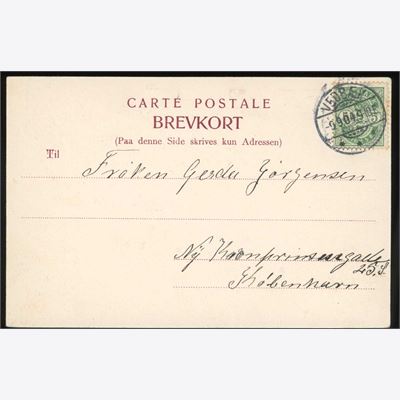 CARTE POSTALE
BREVKORT
(Paa denne Side skrives kun Adressen)
Til
Frøken Gerda Jørgensen
Ny Kronprinsensgade
23.S.
København
VEDBÆK